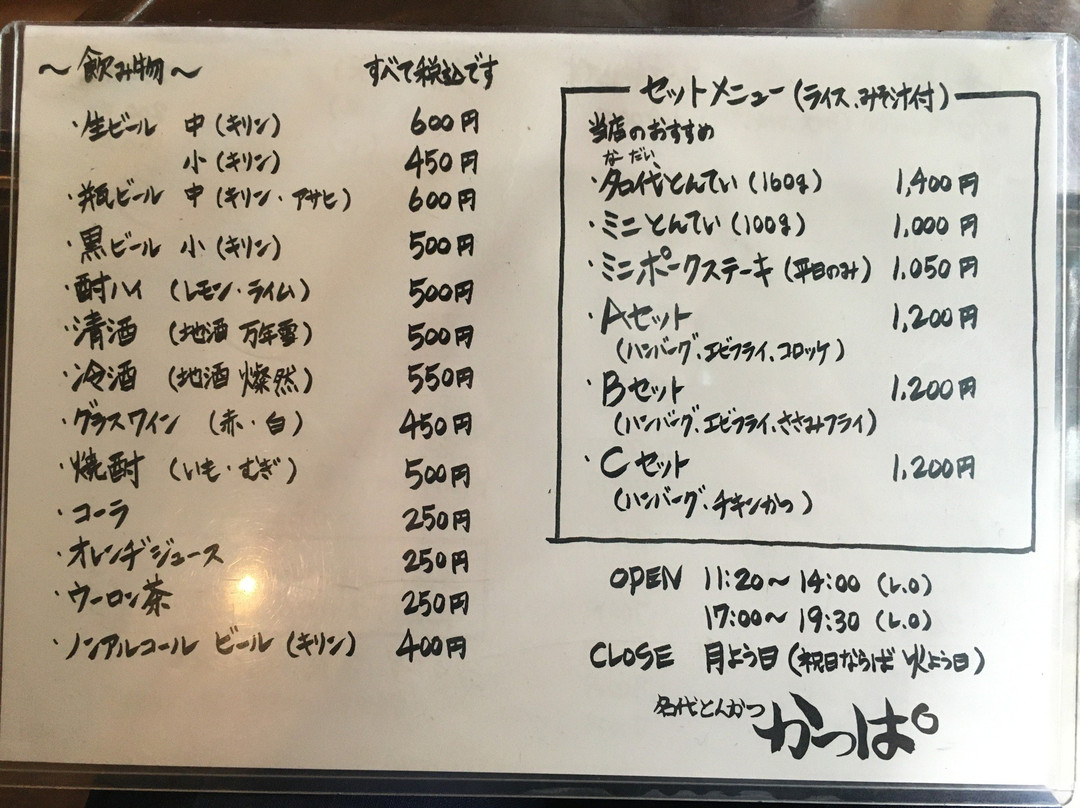 ～飲み物～ すべて税込です
・生ビール 中(キリン) 600円
小(キリン) 450円
・瓶ビール 中(キリン・アサヒ) 600円
・黒ビール 小(キリン) 500円
・酎ハイ (レモン・ライム) 500円
・清酒 (地酒 万年雪) 500円
・冷酒 (地酒 燦然) 550円
・グラスワイン (赤・白) 450円
・焼酎 (いも・むぎ) 500円
・コーラ 250円
・オレンヂジュース 250円
・ウーロン茶 250円
・ノンアルコール ビール (キリン) 400円
セットメニュー(ライス、みそ汁付)
当店のおすすめ
なだい
・名代とんてい(160g) 1,400円
・ミニとんてい(100g) 1,000円
・ミニポークステーキ(平日のみ) 1.050円
・Aセット 1,200円
(ハンバーグ、エビフライ、コロッケ)
・Bセット 1,200円
(ハンバーグ、エビフライ、ささみフライ)
・Cセット 1,200円
(ハンバーグ、チキンかつ)
OPEN 11:20～14:00 (L.O)
17:00～19:30 (L.O)
CLOSE 月よう日(祝日ならば 火よう日)
名代とんかつ かっぱ